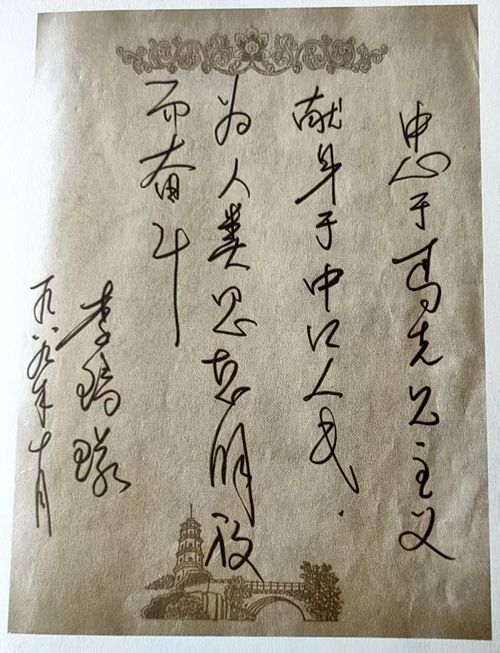 忠于马克思主义
献身于中国人民.
为人类思想解放
而奋斗
李
一九八九年十月